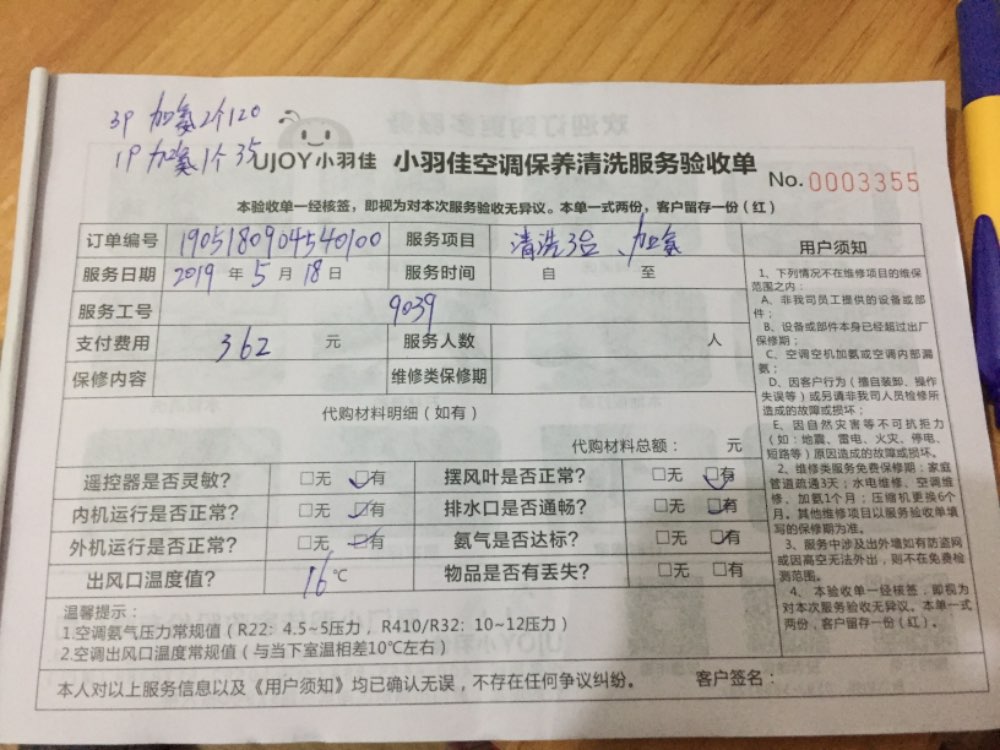 3P 加氨2个120
1P 加氨1个 35
UJOY小羽佳 小羽佳空调保养清洗服务验收单
No. 0003355
本验收单一经核签，即视为对本次服务验收无异议。本单一式两份，客户留存一份（红）
订单编号 1905180904540100 服务项目 清洗3台、加氨
服务日期 2019 年 5 月 18 日 服务时间 自 至
服务工号 9039
支付费用 362 元 服务人数 人
保修内容 维修类保修期
代购材料明细（如有）
代购材料总额： 元
遥控器是否灵敏？ □无 □有 摆风叶是否正常？ □无 □有
内机运行是否正常？ □无 □有 排水口是否通畅？ □无 □有
外机运行是否正常？ □无 □有 氨气是否达标？ □无 □有
出风口温度值？ 16 ℃ 物品是否有丢失？ □无 □有
温馨提示：
1.空调氨气压力常规值（R22：4.5~5压力，R410/R32：10~12压力）
2.空调出风口温度常规值（与当下室温相差10℃左右）
本人对以上服务信息以及《用户须知》均已确认无误，不存在任何争议纠纷。 客户签名：
用户须知
1、下列情况不在维修项目的维保
范围之内：
A、非我司员工提供的设备或部
件；
B、设备或部件本身已经超过出厂
保修期；
C、空调空机加氨或空调内部漏
氨；
D、因客户行为（擅自装卸、操作
失误等）或另请非我司人员检修所
造成的故障或损坏；
E、因自然灾害等不可抗拒力
（如：地震、雷电、火灾、停电、
短路等）原因造成的故障或损坏。
2、维修类服务免费保修期：家庭
管道疏通3天；水电维修、空调维
修、加氨1个月；压缩机更换6个
月。其他维修项目以服务验收单填
写的保修期为准。
3、服务中涉及出外墙如有防盗网
或因高空无法外出，则不在免费检
测范围。
4、本验收单一经核签，即视为
对本次服务验收无异议。本单一式
两份，客户留存一份（红）。